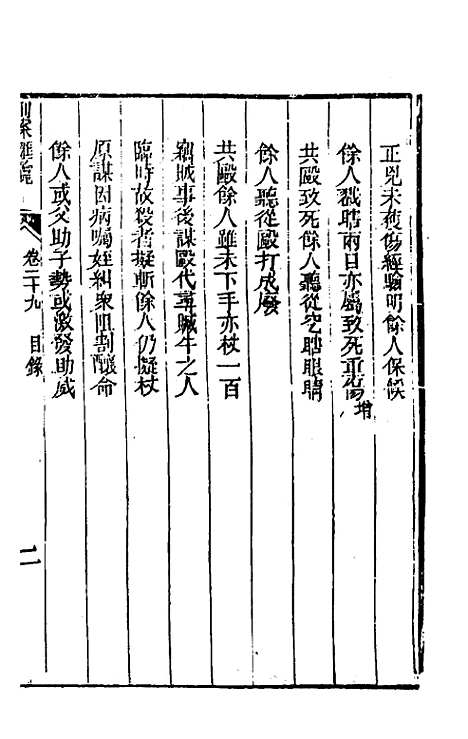 正兇未獲傷經驗明餘人保候
餘人戮瞎兩目亦屬致死重傷增
共毆致死餘人聽從挖瞎眼睛
餘人聽從毆打成廢
共毆餘人雖未下手亦杖一百
竊賊事後謀毆代尋賊牛之人
臨時故殺者擬斬餘人仍擬杖
原謀因病囑姪糾衆阻割釀命
餘人或父助子勢或激發助威
卷二十九 目錄
二